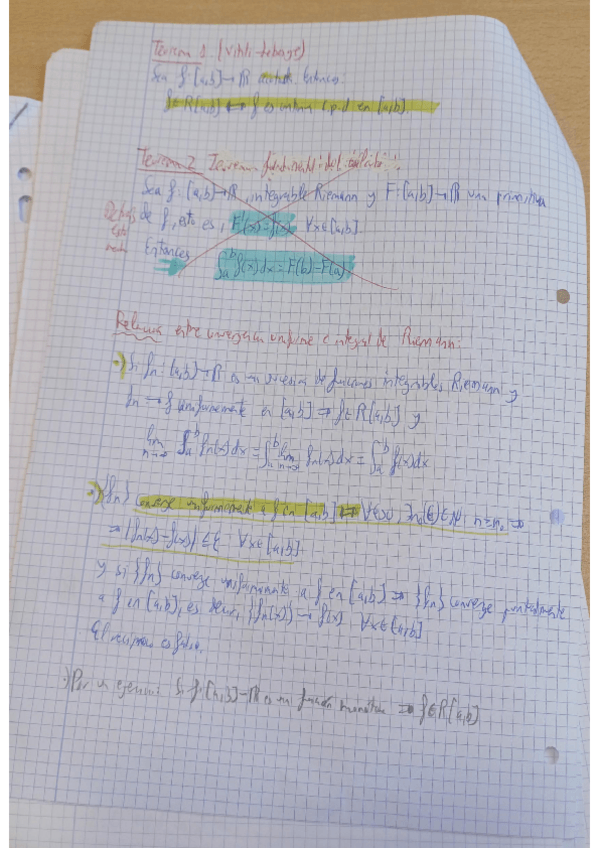 Teorema 1 (Vitali-Lebesgue)
Sea f: [a,b] → ℝ acotada. Entonces
f ∈ R[a,b] ⟺ f es continua c.p.d en [a,b].
Teorema 2 Teorema fundamental del cálculo
Sea f: [a,b] → ℝ, integrable Riemann y F: [a,b] → ℝ una primitiva
de f, esto es, F'(x) = f(x) ∀x∈[a,b].
Entonces
∫_a^b f(x)dx = F(b) - F(a)
Relación entre convergencia uniforme e integral de Riemann:
·) Si fn: [a,b] → ℝ es una sucesión de funciones integrables Riemann y
fn → f uniformemente en [a,b] ⇒ f ∈ R[a,b] y
lim n→∞ ∫_a^b fn(x)dx = ∫_a^b lim n→∞ fn(x)dx = ∫_a^b f(x)dx
·) {fn} converge uniformemente a f en [a,b] ⟺ ∀ε>0, ∃n₀(ε)∈ℕ : n≥n₀ ⇒
⇒ |fn(x) - f(x)| ≤ ε ∀x∈[a,b].
y si {fn} converge uniformemente a f en [a,b] ⇒ {fn} converge puntualmente
a f en [a,b], es decir, {fn(x)} → f(x) ∀x∈[a,b]
El recíproco es falso.
·) Por un ejercicio: Si f: [a,b] → ℝ es una función monótona ⇒ f ∈ R[a,b]